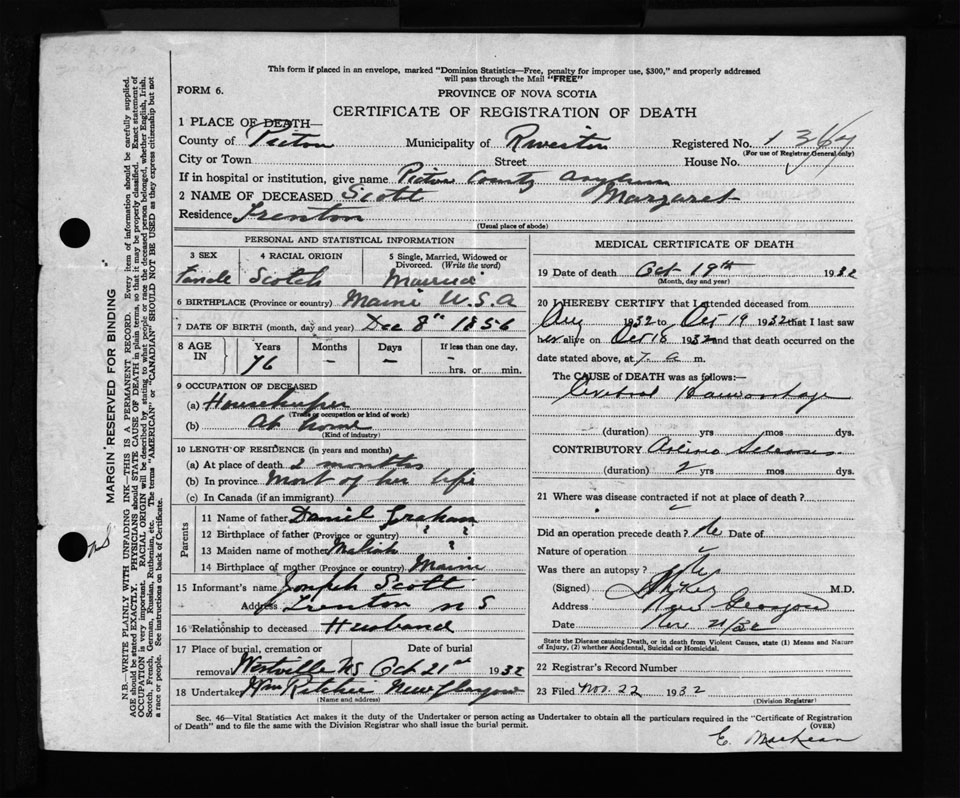 This form if placed in an envelope, marked "Dominion Statistics—Free, penalty for improper use, $300," and properly addressed
will pass through the Mail "FREE"
FORM 6.
PROVINCE OF NOVA SCOTIA
CERTIFICATE OF REGISTRATION OF DEATH
1 PLACE OF DEATH—
County of Pictou Municipality of Registered No. 1364
(For use of Registrar General only)
City or Town Street House No.
If in hospital or institution, give name Pictou County Asylum
2 NAME OF DECEASED Scott Margaret
Residence Trenton
(Usual place of abode)
PERSONAL AND STATISTICAL INFORMATION
3 SEX 4 RACIAL ORIGIN 5 Single, Married, Widowed or
Divorced. (Write the word)
Female Scotch Married
6 BIRTHPLACE (Province or country) Maine U.S.A
7 DATE OF BIRTH (month, day and year) Dec 8th 1856
8 AGE IN Years Months Days If less than one day.
76 – – – hrs. or min.
9 OCCUPATION OF DECEASED
(a) Housekeeper
(Trade or occupation or kind of work)
(b) At home
(Kind of industry)
10 LENGTH OF RESIDENCE (in years and months)
(a) At place of death 2 months
(b) In province Most of her life
(c) In Canada (if an immigrant)
Parents
11 Name of father Daniel Graham
12 Birthplace of father (Province or country) " ?
13 Maiden name of mother ?
14 Birthplace of mother (Province or country) Maine
15 Informant's name Joseph Scott
Address Trenton N S
16 Relationship to deceased Husband
17 Place of burial, cremation or Date of burial
removal Westville NS Oct 21st 1932
18 Undertaker Wm Ritchie New Glasgow
(Name and address)
MEDICAL CERTIFICATE OF DEATH
19 Date of death Oct 19th 1932
(Month, day and year)
20 I HEREBY CERTIFY that I attended deceased from
Aug 1932 to Oct 19 1932 that I last saw
her alive on Oct 18 1932 and that death occurred on the
date stated above, at 7. a m.
The CAUSE of DEATH was as follows:—
Cerebral Haemorrhage
(duration) yrs mos dys.
CONTRIBUTORY Arterio Sclerosis
(duration) 2 yrs mos dys.
21 Where was disease contracted if not at place of death?
Did an operation precede death? No Date of
Nature of operation
Was there an autopsy? No
(Signed) M.D.
Address New Glasgow
Date Nov 21/32
State the Disease causing Death, or in death from Violent Causes, state (1) Means and Nature
of Injury, (2) whether Accidental, Suicidal or Homicidal.
22 Registrar's Record Number
23 Filed Nov. 22 1932
(Division Registrar)
Sec. 46—Vital Statistics Act makes it the duty of the Undertaker or person acting as Undertaker to obtain all the particulars required in the "Certificate of Registration
of Death" and to file the same with the Division Registrar who shall issue the burial permit. (OVER)
E. MacKean
MARGIN RESERVED FOR BINDING
N.B.—WRITE PLAINLY WITH UNFADING INK—THIS IS A PERMANENT RECORD. Every item of information should be carefully supplied.
AGE should be stated EXACTLY. PHYSICIANS should STATE CAUSE OF DEATH in plain terms, so that it may be properly classified. Exact statement of
OCCUPATION is very important. RACIAL ORIGIN will be described by stating to what people or race the deceased person belonged, whether English, Irish,
Scotch, French, German, Russian, Ruthenian, etc. The terms "AMERICAN" or "CANADIAN" SHOULD NOT BE USED as they express citizenship but not
a race or people. See instructions on back of Certificate.